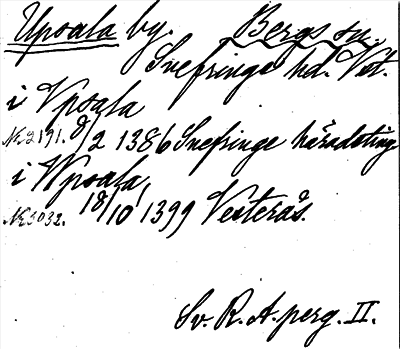 Upsala by. Bergs sn.
Snefringe hd. Vst.
i Vpsala
Nr 2191. 8/2 1386 Snefringe häradsting
i Wpsala
Nr 3032. 18/10 1399 Vesterås.
Sv. R. A. perg. II.